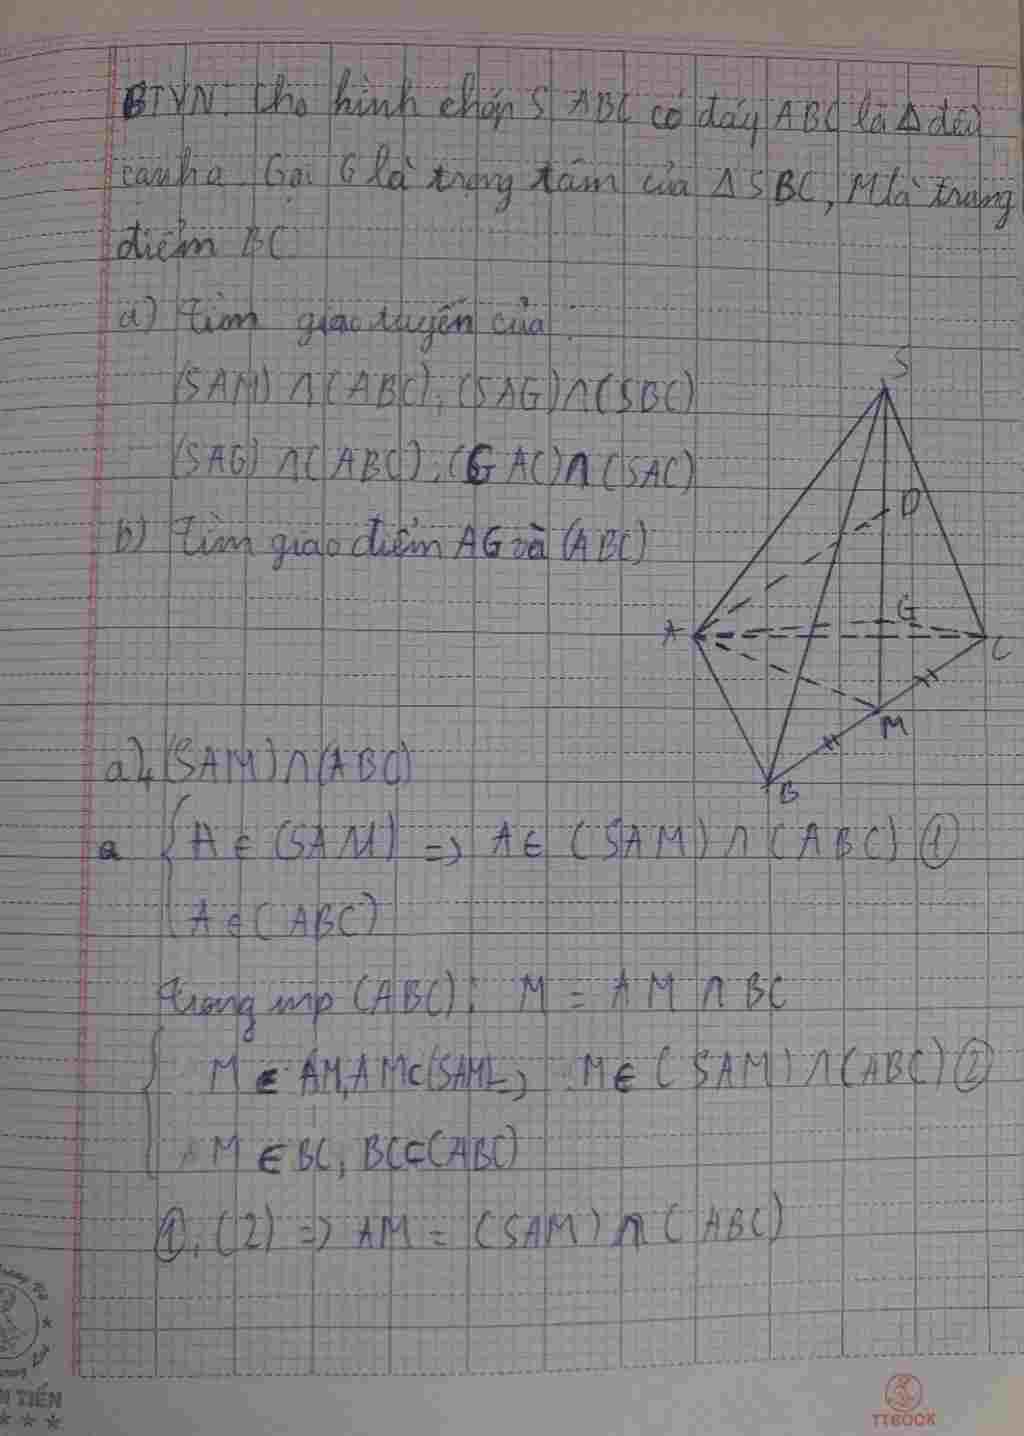 BTVN: Cho hình chóp S ABC có đáy ABC là Δ đều
cạnh a. Gọi G là trọng tâm của ΔSBC, M là trung
điểm BC
a) Tìm giao tuyến của
(SAM) ∩ (ABC); (SAG) ∩ (SBC)
(SAG) ∩ (ABC); (GAC) ∩ (SAC)
b) Tìm giao điểm AG và (ABC)
S
D
A
G
C
M
B
(SAM) ∩ (ABC)
{ A ∈ (SAM) => A ∈ (SAM) ∩ (ABC) ①
A ∈ (ABC)
Trong mp (ABC): M = AM ∩ BC
{ M ∈ AM, AM ⊂ (SAM) => M ∈ (SAM) ∩ (ABC) ②
M ∈ BC, BC ⊂ (ABC)
①, (2) => AM = (SAM) ∩ (ABC)
TIẾN
TTBOOK